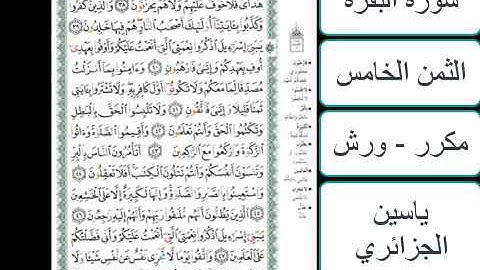 هداي فلا خوف عليهم ولا هم يحزنون ٣٧ والذين كفروا
وكذبوا بـٔايتنا أولئك أصحب النار هم فيها خلدون ٣٨
يبني إسراءيل اذكروا نعمتي التي أنعمت عليكم وأوفوا بعهدي
أوف بعهدكم وإيي فارهبون ٣٩ وءامنوا بما أنزلت
مصدقا لما معكم ولا تكونوا أول كافر به ولا تشتروا بـٔايتي
ثمنا قليلا وإيي فاتقون ٤٠ ولا تلبسوا الحق بالبطل
وتكتموا الحق وأنتم تعلمون ٤١ وأقيموا الصلوة وءاتوا
الزكوة واركعوا مع الركعين ٤٢ أتامرون الناس بالبر
وتنسون أنفسكم وأنتم تتلون الكتب أفلا تعقلون ٤٣
واستعينوا بالصبر والصلوة وإنها لكبيرة إلا على الخشعين ٤٤
الذين يظنون أنهم ملقوا ربهم وأنهم إليه رجعون ٤٥
يبني إسراءيل اذكروا نعمتي التي أنعمت عليكم وأني فضلتكم
على العلمين ٤٦ واتقوا يوما لا تجزي نفس عن نفس شيئا ولا
سورة البقرة
الثمن الخامس
مكرر - ورش
ياسين
الجزائري